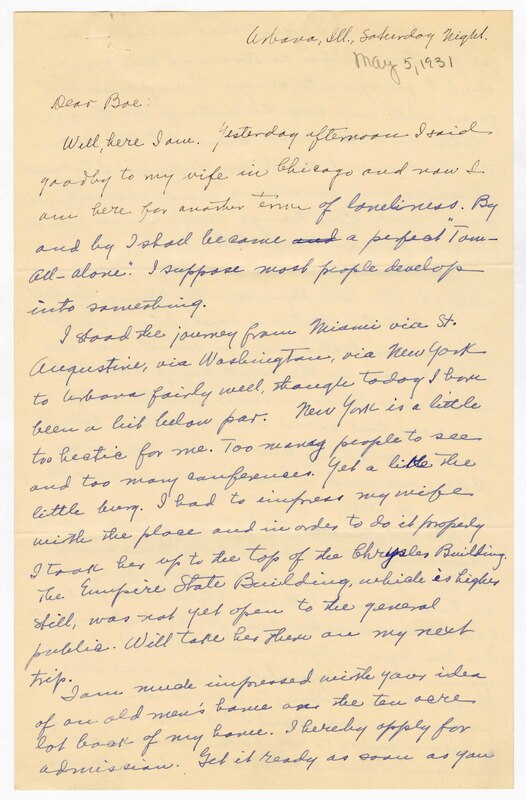 Urbana, Ill., Saturday Night.
May 5, 1931
Dear Boe:
Well, here I am. Yesterday afternoon I said
goodby to my wife in Chicago and now I
am here for another term of loneliness. By
and by I shall become and a perfect "Tom-
all-alone". I suppose most people develop
into something.
I stood the journey from Miami via St.
Augustine, via Washington, via New York
to Urbana fairly well, though today I have
been a bit below par. New York is a little
too hectic for me. Too many people to see
and too many conferences. Yet a like the
little burg. I had to impress my wife
with the place and in order to do it properly
I took her up to the top of the Chrysler Building.
The Empire State Building, which is higher
still, was not yet open to the general
public. Will take her there on my next
trip.
I am much impressed with your idea
of an old men's home on the ten acre
lot back of my home. I hereby apply for
admission. Get it ready as soon as you